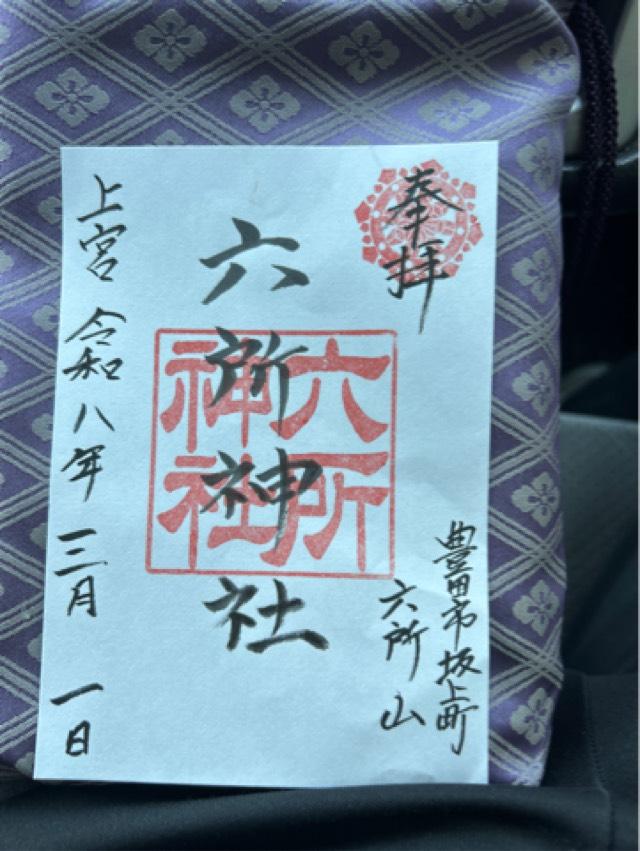 奉拝
豊田市坂上町
六所山
六所神社
六所
神社
上宮 令和八年 三月 一日